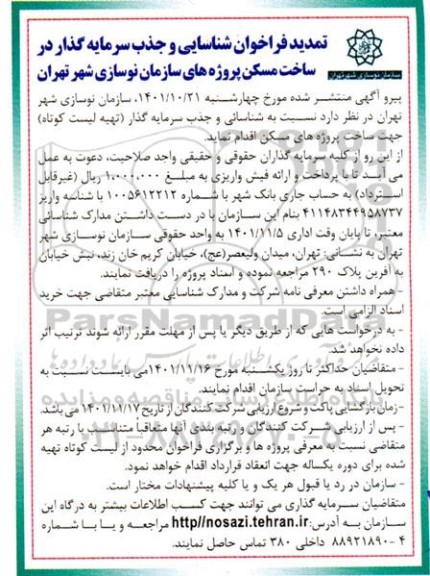 تمدید فراخوان شناسایی و جذب سرمایه گذار در
ساخت مسکن پروژه های سازمان نوسازی شهر تهران
سازمان نوسازی شهر تهران
پیرو آگهی منتشر شده مورخ چهارشنبه ۱۴۰۱/۱۰/۲۱، سازمان نوسازی شهر
تهران در نظر دارد نسبت به شناسائی و جذب سرمایه گذار (تهیه لیست کوتاه)
جهت ساخت پروژه های مسکن اقدام نماید.
از این رو از کلیه سرمایه گذاران حقوقی و حقیقی واجد صلاحیت، دعوت به عمل
می آید تا با پرداخت و ارائه فیش واریزی به مبلغ ۱،۰۰۰،۰۰۰ ریال (غیرقابل
استرداد) به حساب جاری بانک شهر با شماره ۱۰۰۵۶۱۲۲۱۲ با شناسه واریز
۴۱۱۴۸۳۴۴۹۵۸۷۳۷ بنام این سازمان با در دست داشتن مدارک شناسائی
معتبر، تا پایان وقت اداری ۱۴۰۱/۱۱/۵ به واحد حقوقی سازمان نوسازی شهر
تهران به نشانی: تهران، میدان ولیعصر(عج)، خیابان کریم خان زند، نبش خیابان
به آفرین پلاک ۲۹۰ مراجعه نموده و اسناد پروژه را دریافت نمایند.
- همراه داشتن معرفی نامه شرکت و مدارک شناسایی معتبر متقاضی جهت خرید
اسناد الزامی است.
- به درخواست هایی که از طریق دیگر یا پس از مهلت مقرر ارائه شوند ترتیب اثر
داده نخواهد شد.
- متقاضیان حداکثر تا روز یکشنبه مورخ ۱۴۰۱/۱۱/۱۶می بایست نسبت به
تحویل اسناد به حراست سازمان اقدام نمایند.
-زمان بازگشایی پاکت و شروع ارزیابی شرکت کنندگان از تاریخ ۱۴۰۱/۱۱/۱۷ می باشد.
- پس از ارزیابی شرکت کنندگان و رتبه بندی آنها متعاقباً متناسب با رتبه هر
متقاضی نسبت به معرفی پروژه ها و برگزاری فراخوان محدود از لیست کوتاه تهیه
شده برای دوره یکساله جهت انعقاد قرارداد اقدام خواهد نمود.
- سازمان در رد یا قبول هر یک و یا کلیه پیشنهادات مختار است.
متقاضیان سرمایه گذاری می توانند جهت کسب اطلاعات بیشتر به درگاه این
سازمان به آدرس:http//nosazi.tehran.ir مراجعه و یا با شماره
۴ -۸۸۹۲۱۸۹۰ داخلی ۳۸۰ تماس حاصل نمایند.
ParsNamadData